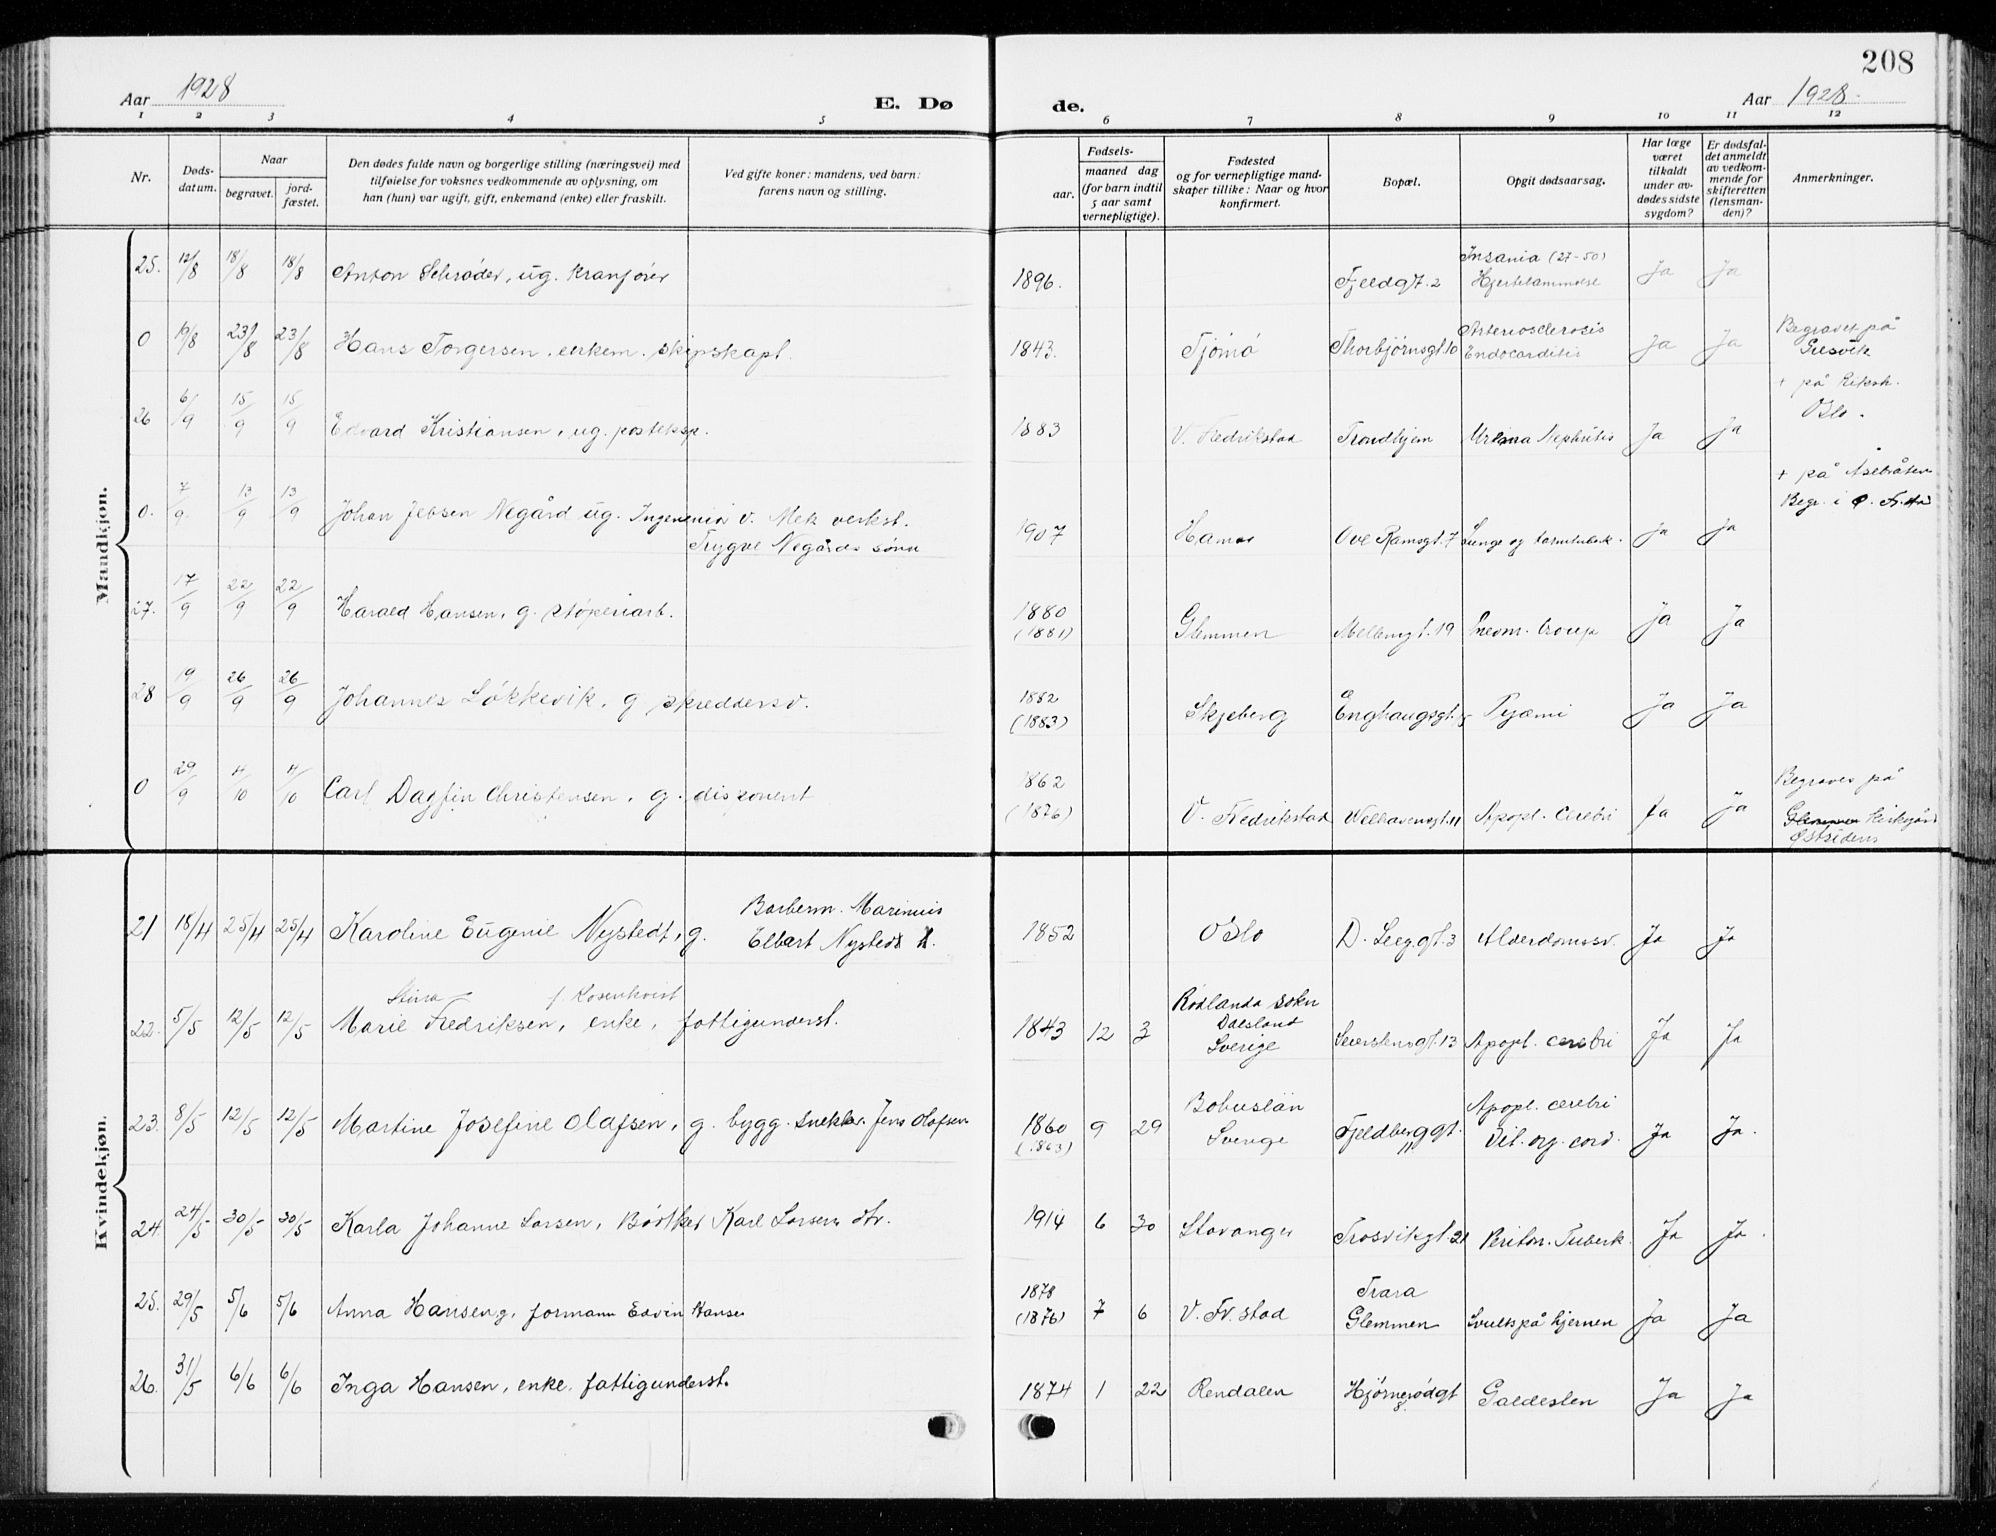 208
Aar 1928
E. Dø
de.
Aar 1928.
1 2 3 4 5 6 7 8 9 10 11 12
Nr.
Døds-
datum.
Naar
begravet.
jord-
fæstet.
Den dødes fulde navn og borgerlige stilling (næringsvei) med
tilføielse for voksnes vedkommende av oplysning, om
han (hun) var ugift, gift, enkemand (enke) eller fraskilt.
Ved gifte koner: mandens, ved barn:
farens navn og stilling.
Fødsels-
aar.
maaned dag
(for barn indtil
5 aar samt
vernepligtige).
Fødested
og for vernepligtige mand-
skaper tillike: Naar og hvor
konfirmert.
Bopæl.
Opgit dødsaarsag.
Har læge
været
tilkaldt
under av-
dødes sidste
sygdom?
Er dødsfal-
det anmeldt
av vedkom-
mende for
skifteretten
(lensman-
den)?
Anmerkninger.
Mandkjøn.
25. 12/8 18/8 18/8 Anton Schrøder, ug. kranfører 1896. Fjeldgt. 2 Insania (27-50)
Hjertelammelse Ja Ja
0 19/8 23/8 23/8 Hans Torgersen, enkem. skipskapt. 1843. Tjømø Thorbjørnsgt. 10 Arteriosclerosis
Endocarditis Ja Ja Begravet på
Gresvik
26 6/9 15/9 15/9 Edvard Kristiansen, ug. posteksp. 1883 V. Fredrikstad Trondhjem Uremia Nephritis Ja Ja + på Riksh.
Oslo.
0. 7/9 13/9 13/9 Johan Jebsen Negård ug. Ingeneniør v. Mek verkst.
Trygve Negårds sønn 1907 Hamar Ove Ramsgt. 7 Lunge og tarmtuberk. Ja Ja + på Åsebråten
Begr. i Ø. Fr.stad
27. 17/9 22/9 22/9 Harald Hansen, g. støperiarb. 1880
(1881) Glemmen Mellemgt. 19 Pnevm. croup Ja Ja
28 19/9 26/9 26/9 Johannes Løkkevik, g skreddersv. 1882
(1883) Skjeberg Enghaugsgt. 15 Pyæmi Ja Ja
0 29/9 4/10 4/10 Carl Dagfin Christensen, g. disponent 1862
(1876) V. Fredrikstad Welhavensgt. 11 Apopl. cerebri Ja Ja Begraves på
Glemmen kirkegård
Østsidens
Kvindekjøn.
21 18/4 25/4 25/4 Karoline Eugenie Nystedt, g. Barberm. Marinius
Elbert Nystedt 1852 Oslo D. Leegt. 3 Alderdomssv. Ja Ja
Stina f. Rosenkvist
22. 5/5 12/5 12/5 Marie Fredriksen, enke, fattigunderst. 1843 12 3 Rødlanda sokn
Dalsland
Sverige Severstensgt. 13 Apopl. cerebri Ja Ja
23. 8/5 12/5 12/5 Martine Josefine Olafsen, g. bygg. snekker Jens Olafsen 1860
(1863) 9 29 Bohuslän
Sverige Fjeldberggt.
11 Apopl. cerebri
Vit. org. cord. Ja Ja.
24. 24/5 30/5 30/5 Karla Johanne Larsen, Bødtker Karl Larsens dtr. 1914 6 30 Stavanger Trosvikgt. 21 Periton. Tuberk. Ja Ja.
25. 29/5 5/6 5/6 Anna Hansen g. formann Edvin Hansen 1878
(1876) 7 6 V. Fr.stad Trara
Glemmen Svulst på hjernen Ja Ja
26. 31/5 6/6 6/6 Inga Hansen, enke, fattigunderst. 1874 1 22 Rendalen Hjørnerødgt
8. Galdesten Ja Ja